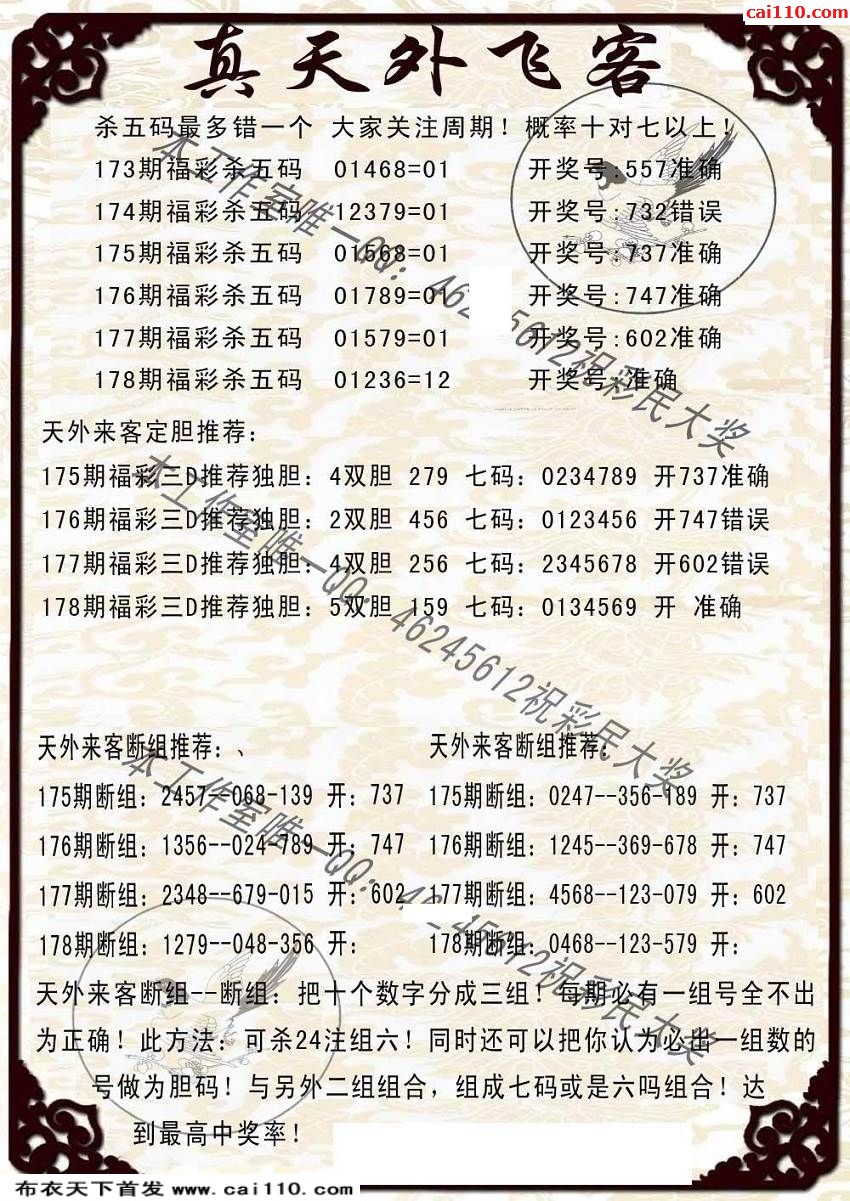 cai110.com
真天外飞客
杀五码最多错一个 大家关注周期！概率十对七以上！
173期福彩杀五码 01468=01 开奖号:557准确
174期福彩杀五码 12379=01 开奖号:732错误
175期福彩杀五码 01568=01 开奖号:737准确
176期福彩杀五码 01789=01 开奖号:747准确
177期福彩杀五码 01579=01 开奖号:602准确
178期福彩杀五码 01236=12 开奖号:准确
本工作室唯一QQ：46245612祝彩民大奖
天外来客定胆推荐：
175期福彩三D推荐独胆：4双胆 279 七码：0234789 开737准确
176期福彩三D推荐独胆：2双胆 456 七码：0123456 开747错误
177期福彩三D推荐独胆：4双胆 256 七码：2345678 开602错误
178期福彩三D推荐独胆：5双胆 159 七码：0134569 开 准确
本工作室唯一QQ：46245612祝彩民大奖
天外来客断组推荐：、 天外来客断组推荐：
175期断组：2457--068-139 开：737 175期断组：0247--356-189 开：737
176期断组：1356--024-789 开：747 176期断组：1245--369-678 开：747
177期断组：2348--679-015 开：602 177期断组：4568--123-079 开：602
178期断组：1279--048-356 开： 178期断组：0468--123-579 开：
本工作室唯一QQ：46245612祝彩民大奖
天外来客断组--断组：把十个数字分成三组！每期必有一组号全不出
为正确！此方法：可杀24注组六！同时还可以把你认为必出一组数的
号做为胆码！与另外二组组合，组成七码或是六吗组合！达
到最高中奖率！
布衣天下首发 www.cai110.com